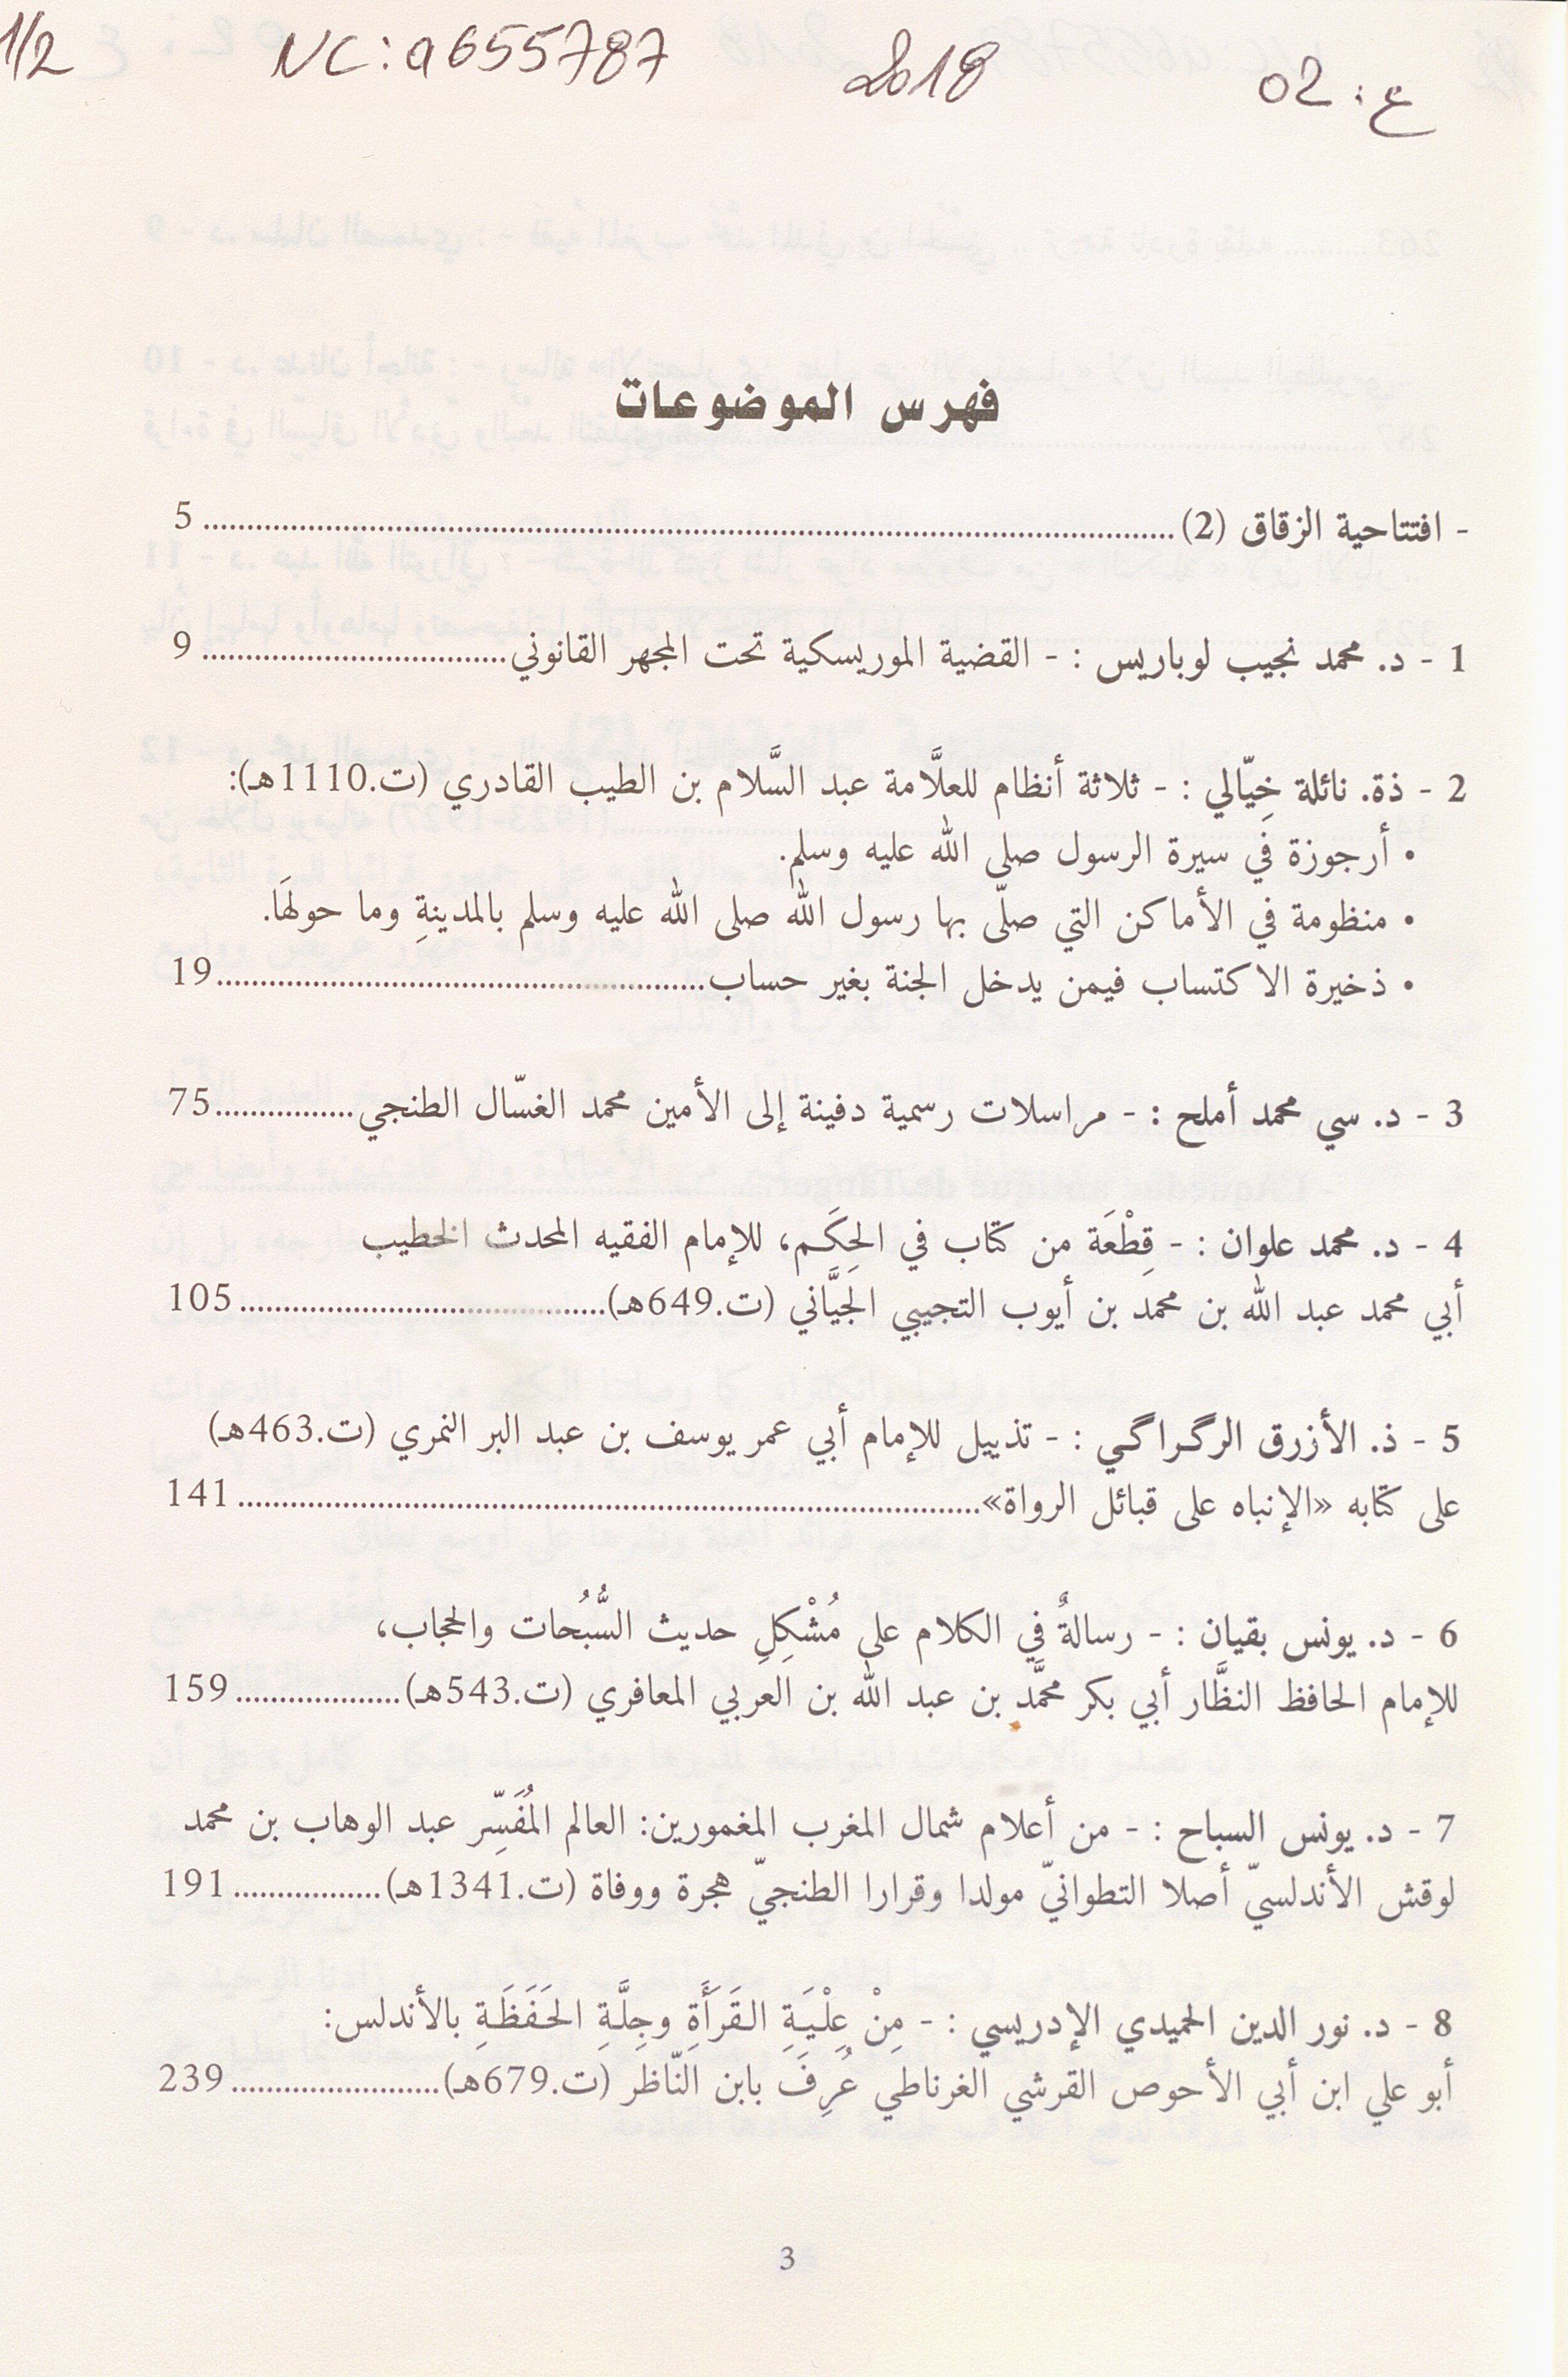 1/2 NC: a655787 2018 ع: 02
فهرس الموضوعات
- افتتاحية الزقاق (2) ........ 5
1 - د. محمد نجيب لوباريس : - القضية الموريسكية تحت المجهر القانوني ........ 9
2 - ذة. نائلة خِيّالي : - ثلاثة أنظام للعلَّامة عبد السَّلام بن الطيب القادري (ت.1110هـ):
• أرجوزة في سيرة الرسول صلى الله عليه وسلم.
• منظومة في الأماكن التي صلّى بها رسول الله صلى الله عليه وسلم بالمدينةِ وما حولهَا.
• ذخيرة الاكتساب فيمن يدخل الجنة بغير حساب ........ 19
3 - د. سي محمد أملح : - مراسلات رسمية دفينة إلى الأمين محمد الغسّال الطنجي ........ 75
4 - د. محمد علوان : - قِطْعَة من كتاب في الحِكَم، للإمام الفقيه المحدث الخطيب
أبي محمد عبد الله بن محمد بن أيوب التجيبي الجَيَّاني (ت.649هـ) ........ 105
5 - ذ. الأزرق الرگراگي : - تذييل للإمام أبي عمر يوسف بن عبد البر النمري (ت.463هـ)
على كتابه «الإنباه على قبائل الرواة» ........ 141
6 - د. يونس بقيان : - رسالةٌ في الكلام على مُشْكِلِ حديث السُّبُحات والحجاب،
للإمام الحافظ النظَّار أبي بكر محمَّد بن عبد الله بن العربي المعافري (ت.543هـ) ........ 159
7 - د. يونس السباح : - من أعلام شمال المغرب المغمورين: العالم المُفَسِّر عبد الوهاب بن محمد
لوقش الأندلسيّ أصلا التطوانيّ مولدا وقرارا الطنجيّ هجرة ووفاة (ت.1341هـ) ........ 191
8 - د. نور الدين الحميدي الإدريسي : - مِنْ عِلْيَةِ القَرَأَةِ وجِلَّةِ الحَفَظَةِ بالأندلس:
أبو علي ابن أبي الأحوص القرشي الغرناطي عُرِفَ بابن النّاظر (ت.679هـ) ........ 239
3